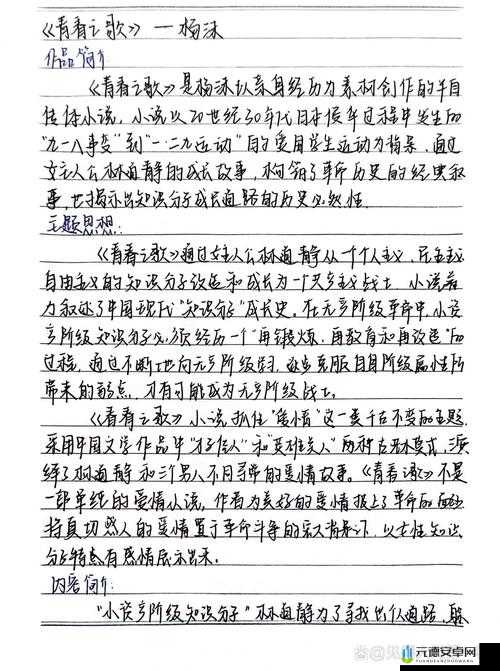 《青春之歌》 — 杨沫
作品简介
《青春之歌》是杨沫以亲身经历为素材创作的半自
传体小说，小说以20世纪30年代日本侵华过程中发生的
"九一八事变"到"一二九运动"的爱国学生运动为背景，通过
女主人公林道静的成长故事，构筑了革命历史的经典叙
事，也揭示出知识分子成长道路的历史必然性。
主题思想：
《青春之歌》通过女主人公林道静从一个个人主义、民主主义
自由主义的知识分子改造和成长为一个共产主义战士，小说着
力叙述了中国现代"知识分子"成长史。在无产阶级革命中，小资
产阶级知识分子必须经历一个"再锻炼，再教育和再改造"的
过程，通过不断地向无产阶级学习，逐步克服自身阶级属性所
带来的弱点，才有可能成为无产阶级战士。
《青春之歌》小说抓住"爱情"这一类千古不变的主题，
采用中国文学作品中"才子佳人"和"英雄美人"两种古典模式，演
绎了林道静和三个男人不同寻常的爱情故事。《青春之歌》不是
一部单纯的爱情小说，作者为美好的爱情披上了革命的
将真切感人的爱情置于革命斗争的宏大背景下，以女性知识
分子特有感情展示出来。
内容简介：
"小资产阶级知识分子"林道静为了寻找出路，
元德安卓网